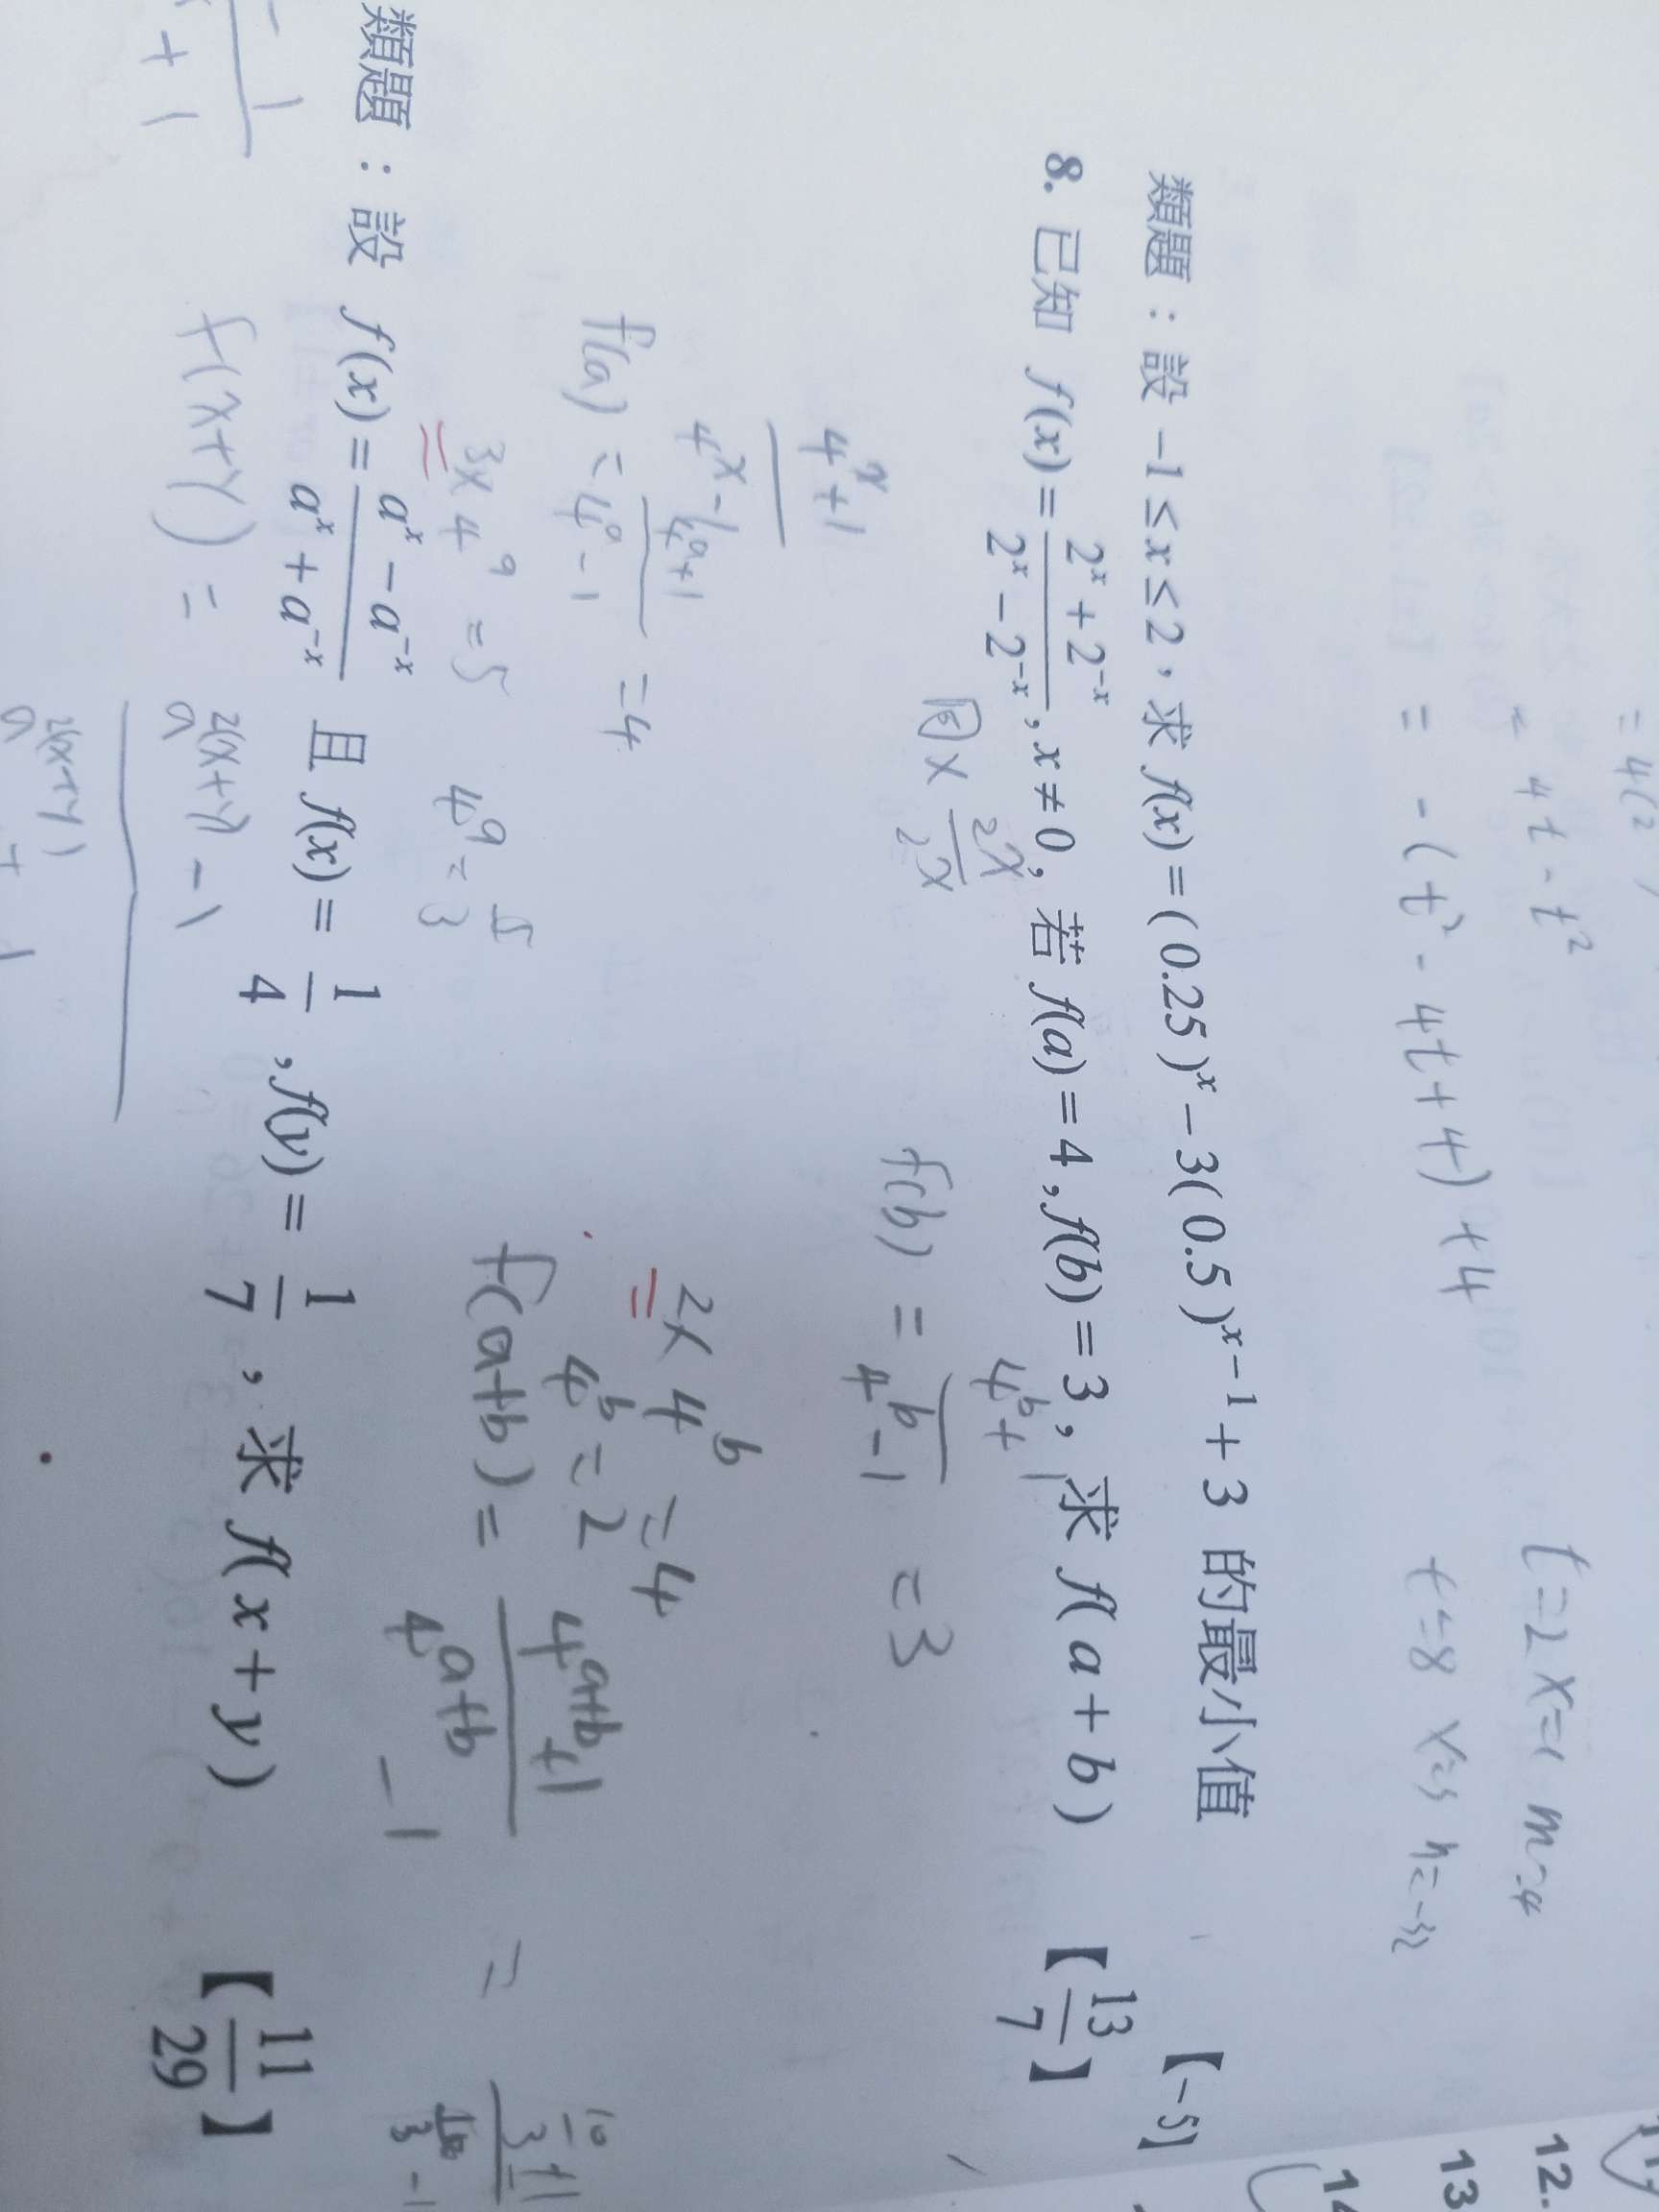 = 4(2
= 4t - t²
= -(t² - 4t + 4) + 4
t=2 x=1 m=4
t=8 x=3 n=-32
12.
13
14
類題：設 -1≤x≤2，求 f(x)=(0.25)^x-3(0.5)^{x-1}+3 的最小值 【-5】
8. 已知 f(x)=\frac{2^x+2^{-x}}{2^x-2^{-x}}, x≠0，若 f(a)=4,f(b)=3，求 f(a+b) 【\frac{13}{7}】
同x \frac{2^x}{2^x}
\frac{4^x+1}{4^x-1}
f(a) = \frac{4^a+1}{4^a-1} = 4
3x4^a = 5
4^a = \frac{5}{3}
f(b) = \frac{4^b+1}{4^b-1} = 3
2x4^b = 4
4^b = 2
f(a+b) = \frac{4^{a+b}+1}{4^{a+b}-1} = \frac{\frac{10}{3}+1}{\frac{10}{3}-1}
類題：設 f(x)=\frac{a^x-a^{-x}}{a^x+a^{-x}} 且 f(x)=\frac{1}{4},f(y)=\frac{1}{7}，求 f(x+y) 【\frac{11}{29}】
f(x+y) = \frac{a^{2(x+y)}-1}{a^{2(x+y)}+1}
- 1
+ 1